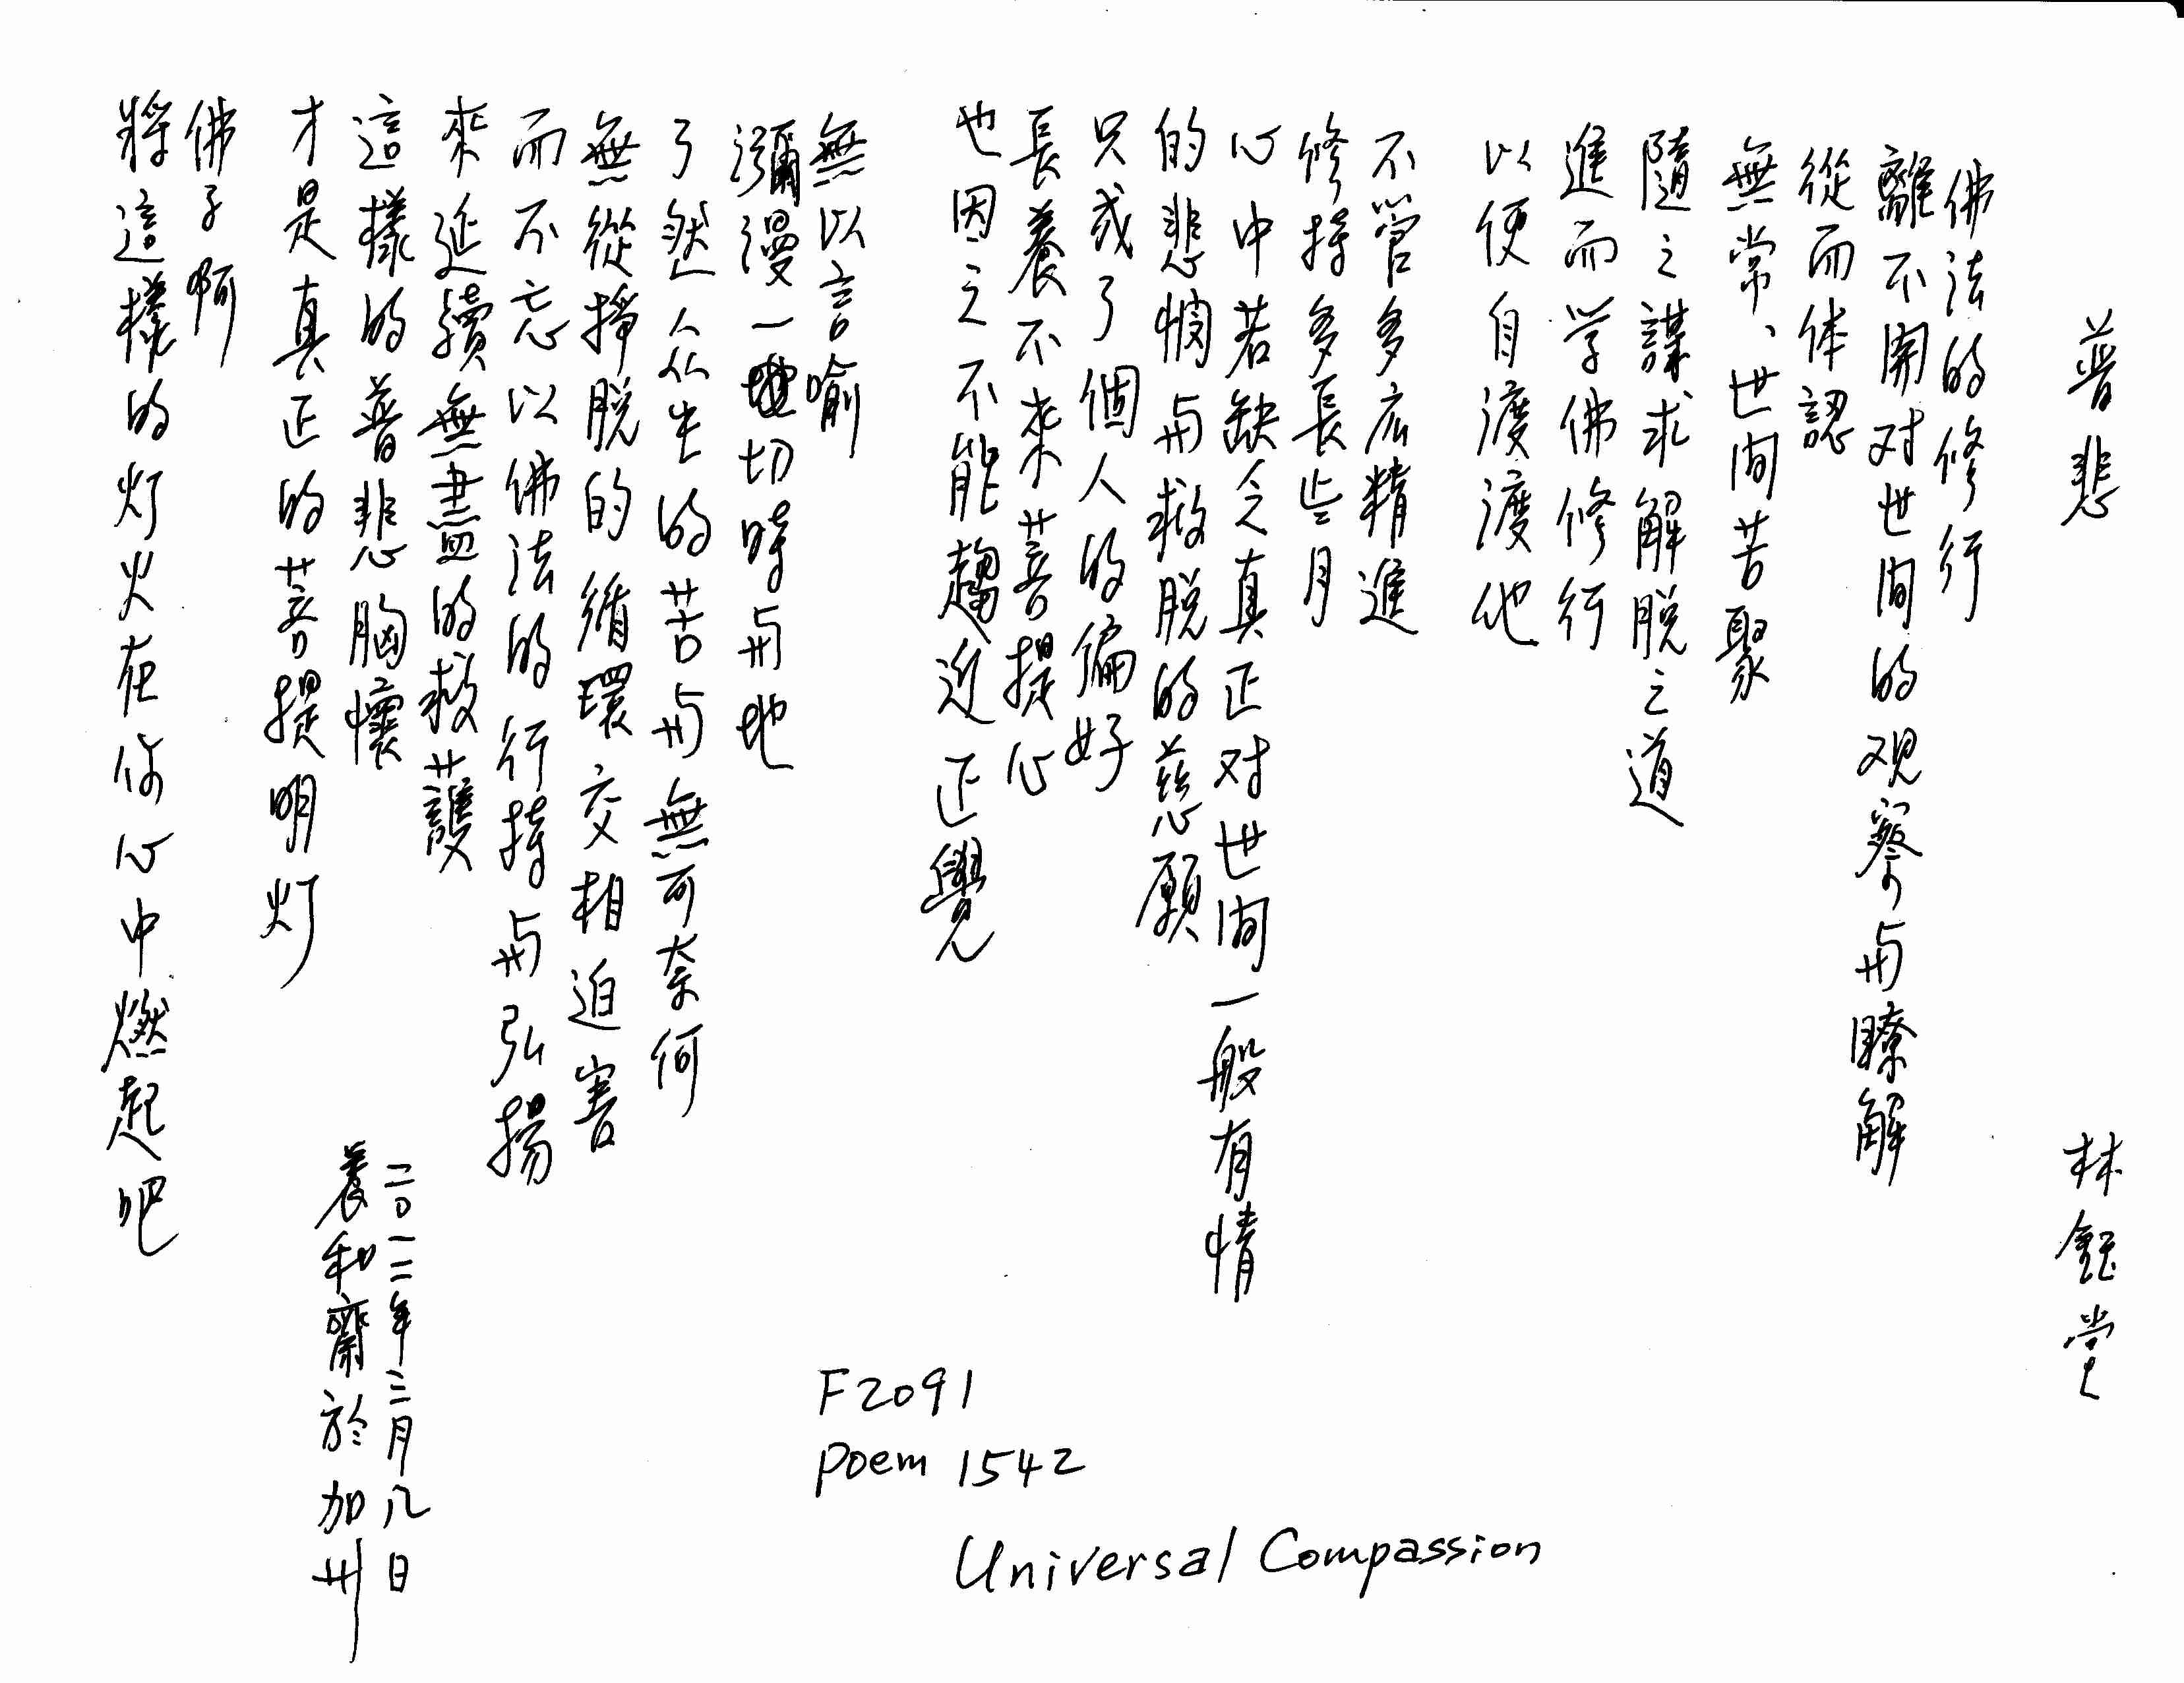 普悲 林鈺堂
佛法的修行
離不開对世间的观察与瞭解
從而体認
無常、世间苦聚
隨之謀求解脫之道
進而学佛修行
以便自渡渡他
不管多庅精進
修持多長些月
心中若缺乏真正对世间一般有情
的悲悯与救脫的慈願
只成了個人的偏好
長養不來菩提心
也因之不能趨近正覺
無以言喻
瀰漫一切時与地
了然众生的苦与無可奈何
無從掙脫的循環交相迫害
而不忘以佛法的行持与弘揚
來延續無盡的救護
這樣的普悲胸懷
才是真正的菩提明灯
佛子啊
將這樣的灯火在你心中燃起吧
二〇一二年三月八日
養和齋於加州
F2091
Poem 1542
Universal Compassion